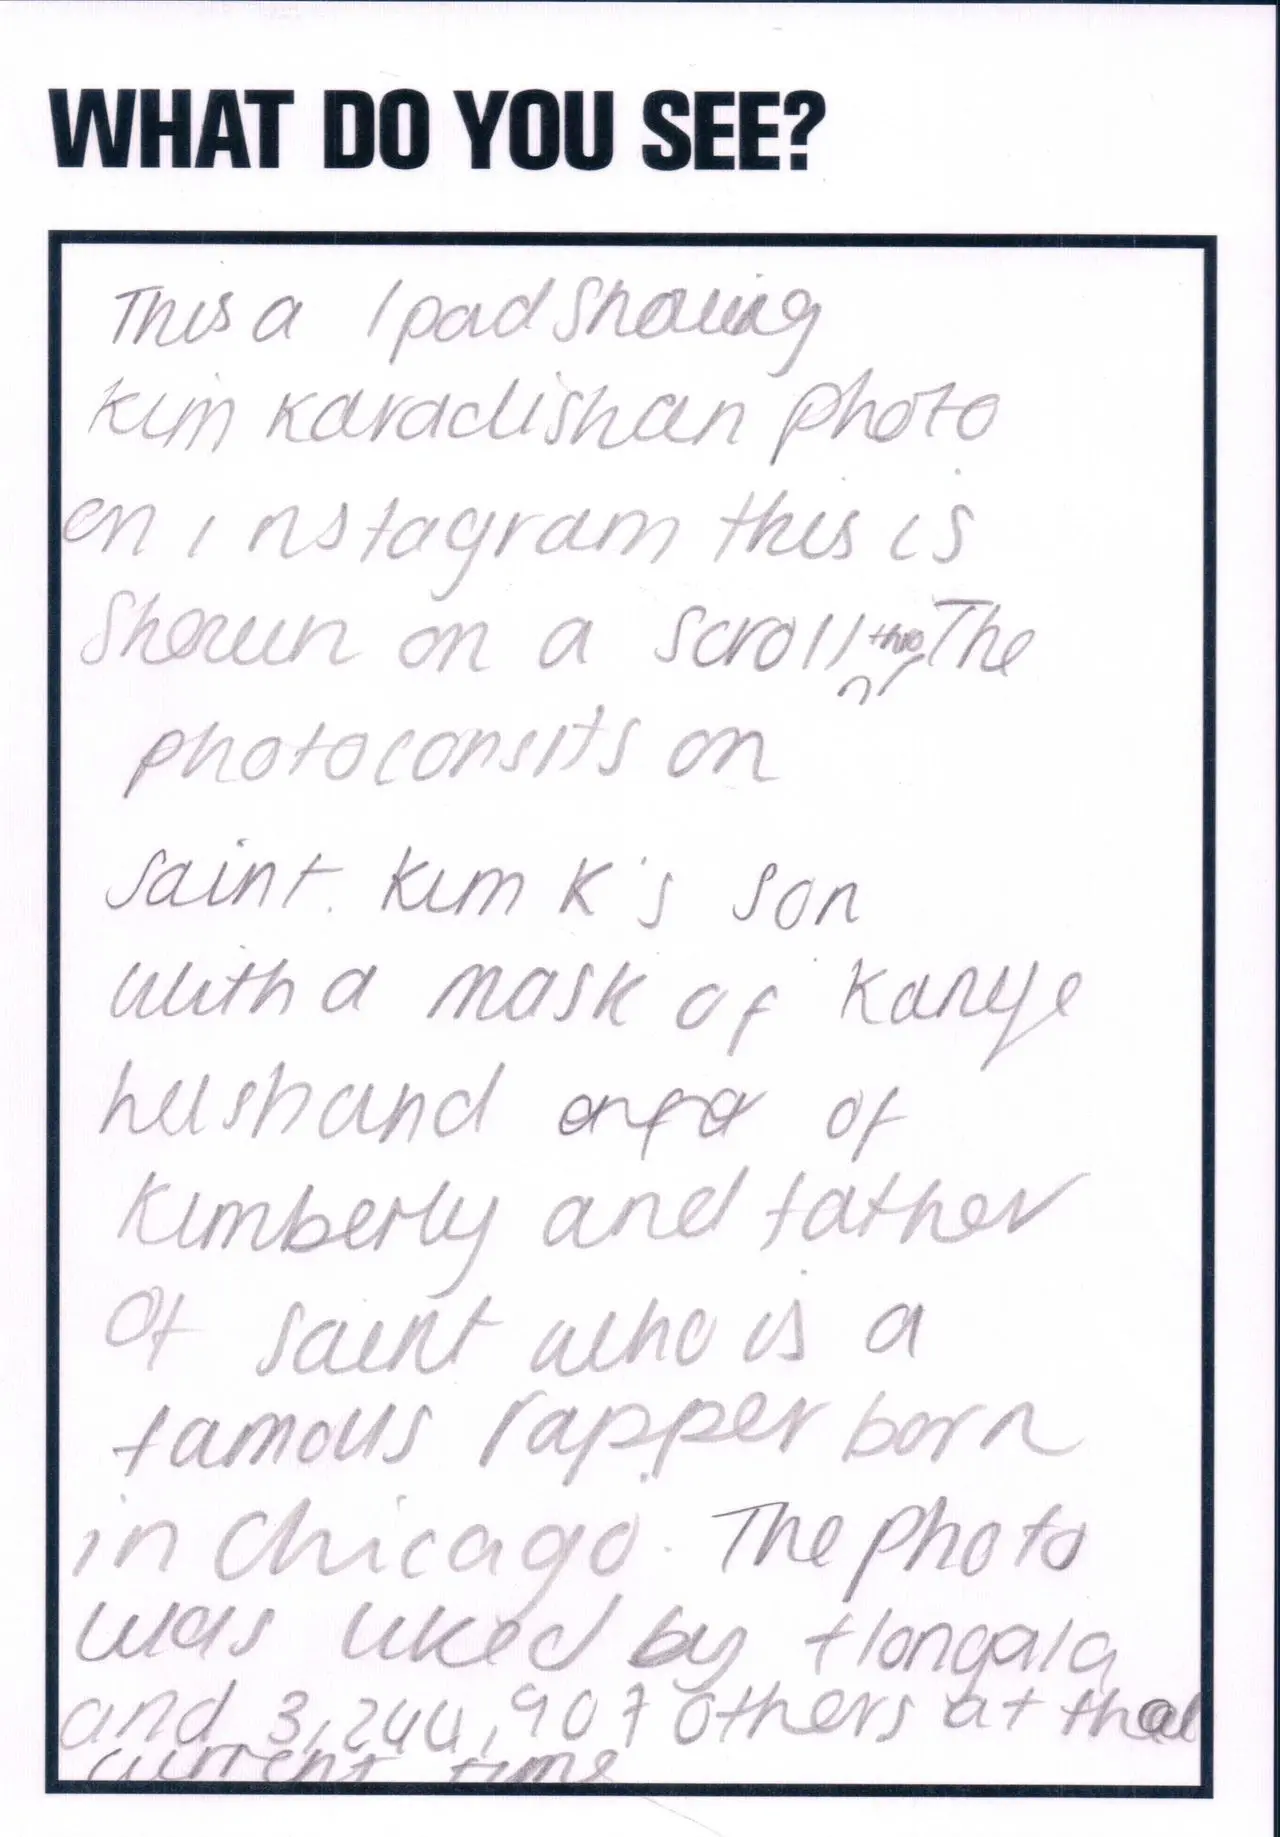 WHAT DO YOU SEE?
This a Ipad showing
kim Karadishan photo
on instagram this is
shown on a scroll thro The
photo consits on
saint. Kim K's son
with a mask of Kanye
husband of
Kimberly and father
Of saint who is a
famous rapper born
in Chicago. The photo
was liked by
and 3,244,907 others at
current time